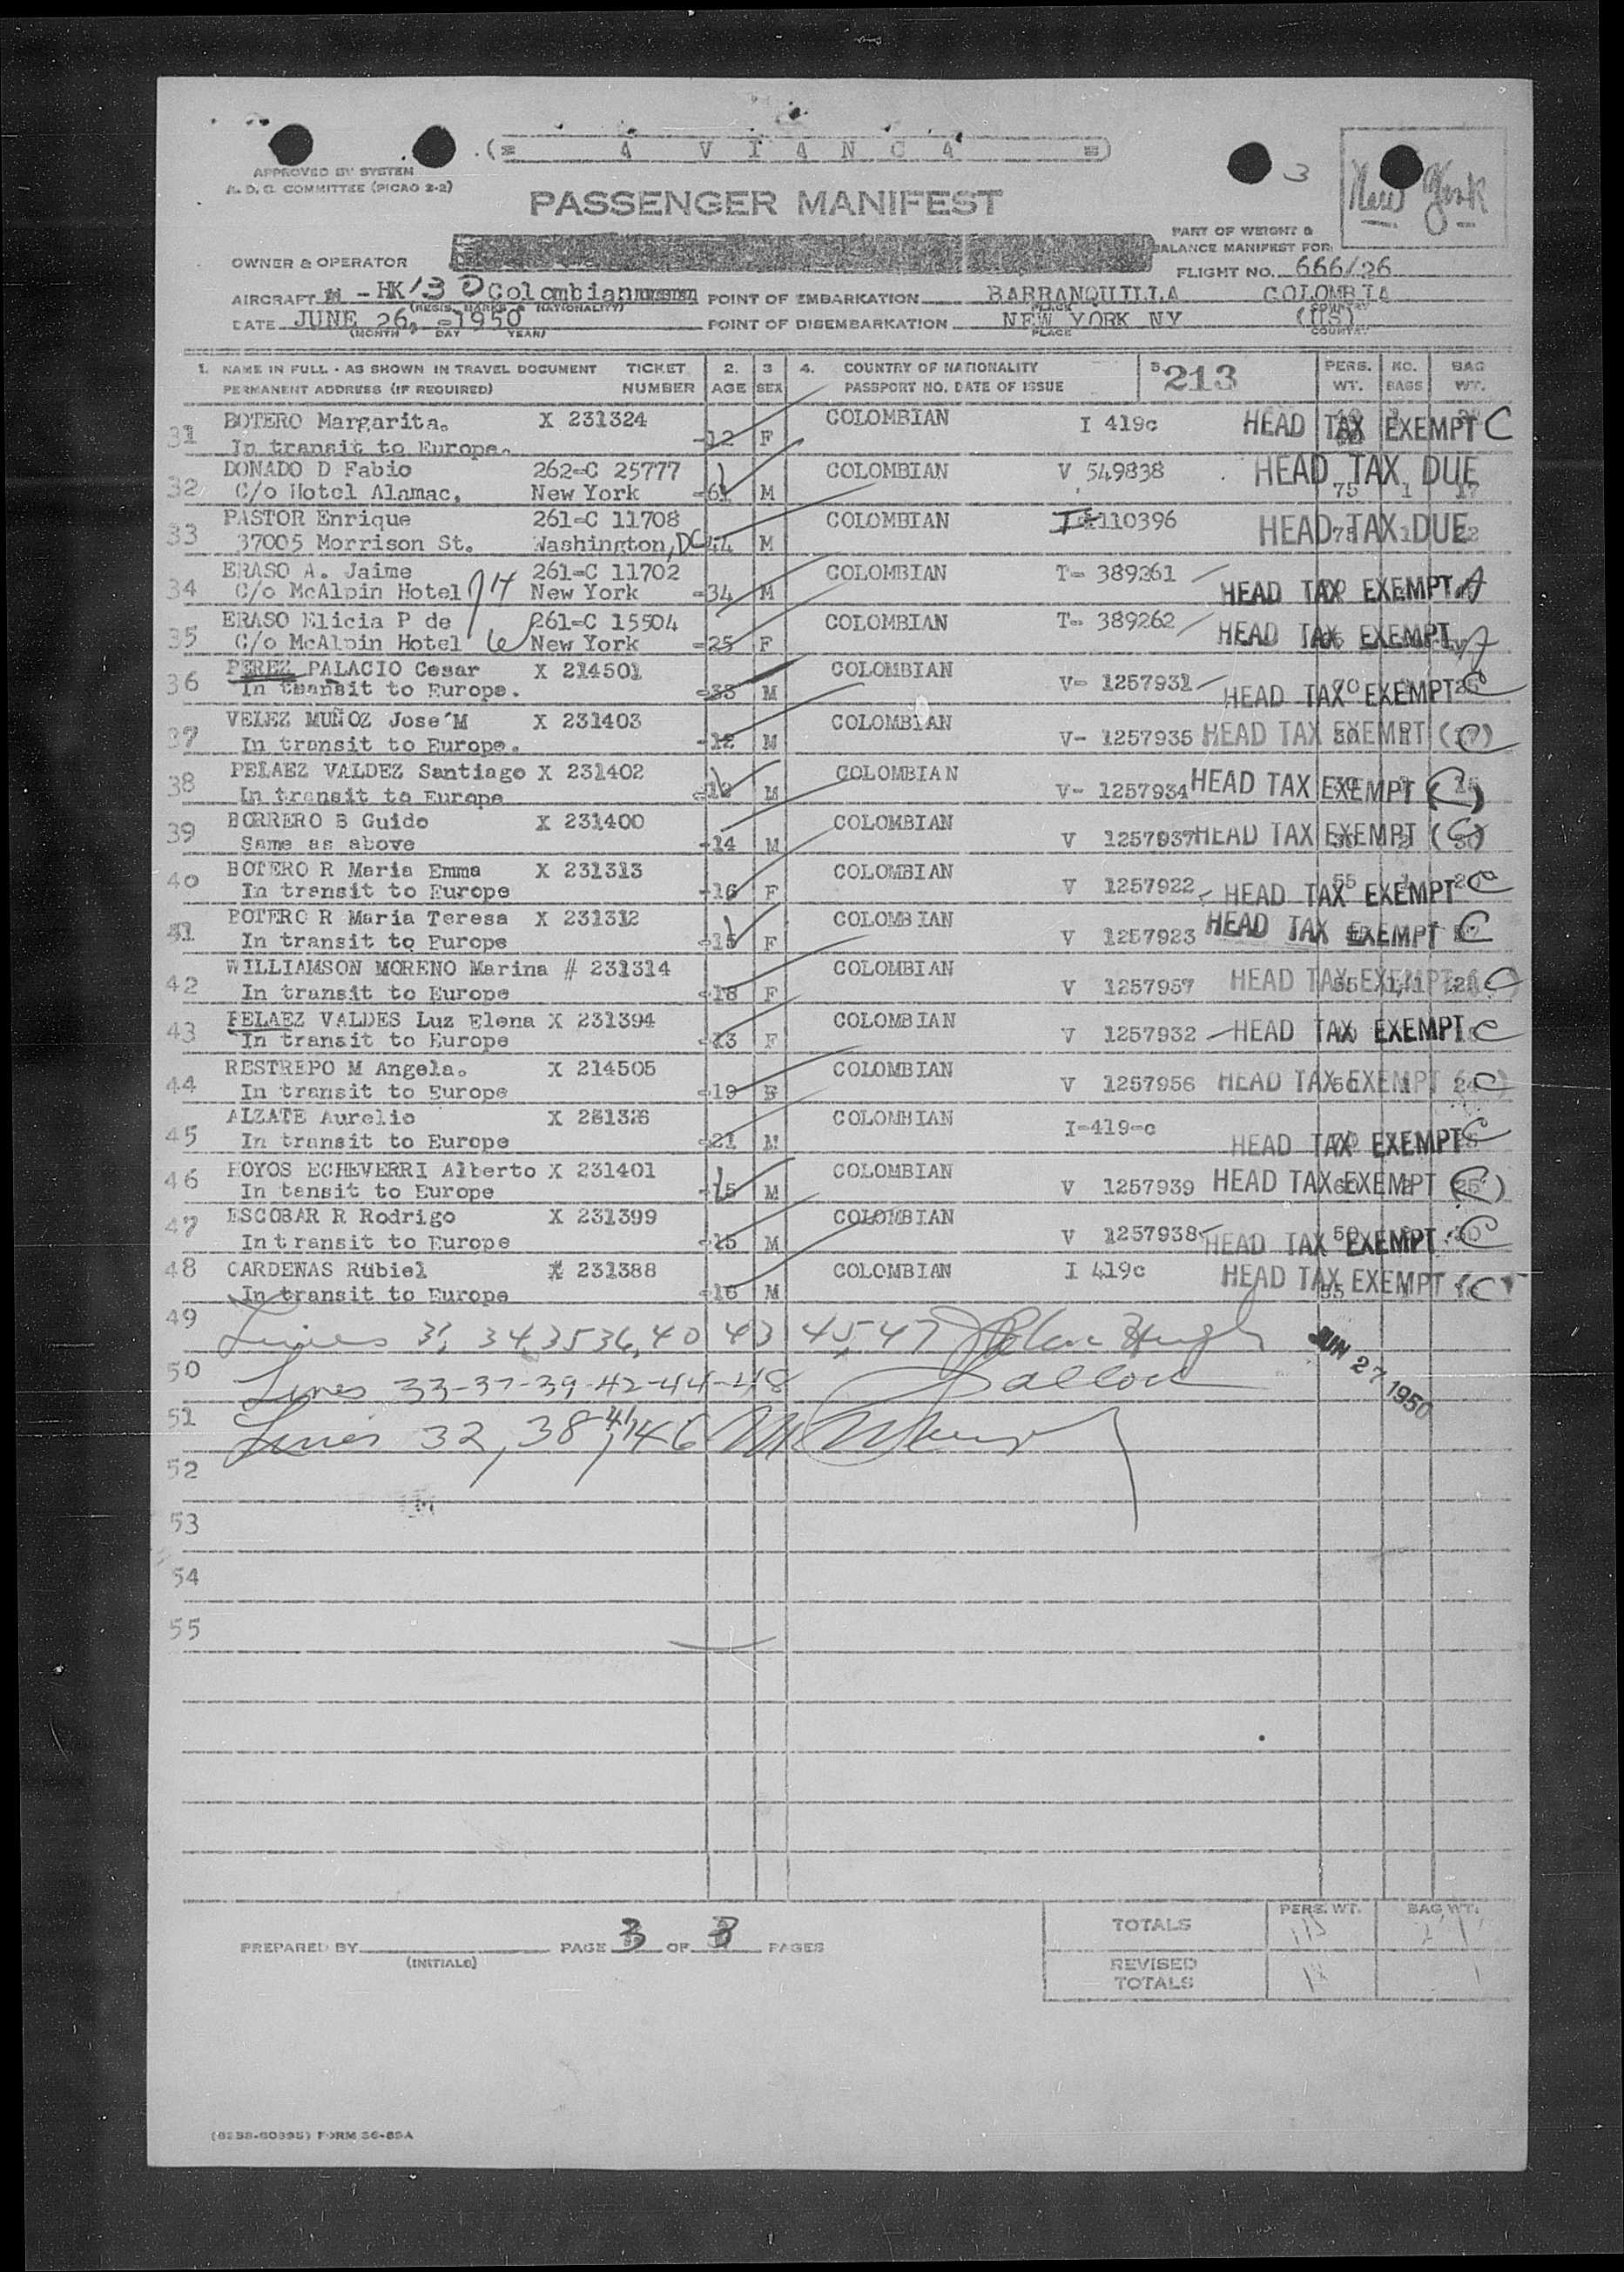 (= A V I A N C A =)
APPROVED BY SYSTEM
A. D. C. COMMITTEE (PICAO 2-2)
3
New York
PASSENGER MANIFEST
PART OF WEIGHT &
BALANCE MANIFEST FOR:
OWNER & OPERATOR
FLIGHT NO. 666/26
AIRCRAFT - HK 130 Colombian POINT OF EMBARKATION BARRANQUILLA COLOMBIA
(REGIS. MARKS & NATIONALITY) PLACE COUNTRY
DATE JUNE 26, -1950 POINT OF DISEMBARKATION NEW YORK NY (US)
(MONTH DAY YEAR) PLACE COUNTRY
1. NAME IN FULL - AS SHOWN IN TRAVEL DOCUMENT TICKET 2. 3 4. COUNTRY OF NATIONALITY 5 213 PERS. NO. BAG
PERMANENT ADDRESS (IF REQUIRED) NUMBER AGE SEX PASSPORT NO. DATE OF ISSUE WT. BAGS WT.
31 BOTERO Margarita. X 231324 COLOMBIAN I 419c HEAD TAX EXEMPT C
In transit to Europe. -12 F
32 DONADO D Fabio 262-C 25777 COLOMBIAN V 549838 HEAD TAX DUE
C/o Hotel Alamac, New York -61 M 75 1 17
33 PASTOR Enrique 261-C 11708 COLOMBIAN I 110396 HEAD TAX DUE
37005 Morrison St. Washington, DC 44 M
34 ERASO A. Jaime 261-C 11702 COLOMBIAN T- 389261 HEAD TAX EXEMPT A
C/o McAlpin Hotel New York -34 M
35 ERASO Elicia P de 261-C 15504 COLOMBIAN T- 389262 HEAD TAX EXEMPT A
C/o McAlpin Hotel New York -25 F
36 PEREZ PALACIO Cesar X 214501 COLOMBIAN V- 1257931 HEAD TAX EXEMPT C
In transit to Europe. -33 M
37 VELEZ MUÑOZ Jose´M X 231403 COLOMBIAN V- 1257935 HEAD TAX EXEMPT (C)
In transit to Europe. -12 M
38 PELAEZ VALDEZ Santiago X 231402 COLOMBIAN V- 1257934 HEAD TAX EXEMPT (C)
In transit to Europe -12 M
39 BORRERO B Guido X 231400 COLOMBIAN V 1257937 HEAD TAX EXEMPT (C)
Same as above -14 M
40 BOTERO R Maria Emma X 231313 COLOMBIAN V 1257922 HEAD TAX EXEMPT C
In transit to Europe -16 F
41 BOTERO R Maria Teresa X 231312 COLOMBIAN V 1257923 HEAD TAX EXEMPT C
In transit to Europe -15 F
42 WILLIAMSON MORENO Marina # 231314 COLOMBIAN V 1257957 HEAD TAX EXEMPT (C)
In transit to Europe -18 F
43 PELAEZ VALDES Luz Elena X 231394 COLOMBIAN V 1257932 HEAD TAX EXEMPT C
In transit to Europe -13 F
44 RESTREPO M Angela. X 214505 COLOMBIAN V 1257956 HEAD TAX EXEMPT (C)
In transit to Europe -19 F
45 ALZATE Aurelio X 231326 COLOMBIAN I-419-c HEAD TAX EXEMPT C
In transit to Europe -21 M
46 HOYOS ECHEVERRI Alberto X 231401 COLOMBIAN V 1257939 HEAD TAX EXEMPT (C)
In tansit to Europe -15 M
47 ESCOBAR R Rodrigo X 231399 COLOMBIAN V 1257938 HEAD TAX EXEMPT C
In transit to Europe -15 M
48 CARDENAS Rubiel X 231388 COLOMBIAN I 419c HEAD TAX EXEMPT (C)
In transit to Europe -16 M
49 Lines 31, 34, 35 36, 40 43 45, 47
JUN 27 1950
50 Lines 33-37-39-42-44-48
51 Lines 32, 38, 41, 46
52
53
54
55
PERS. WT. BAG WT.
TOTALS
PREPARED BY PAGE 3 OF 3 PAGES
(INITIALS)
REVISED
TOTALS
FORM 36-85A